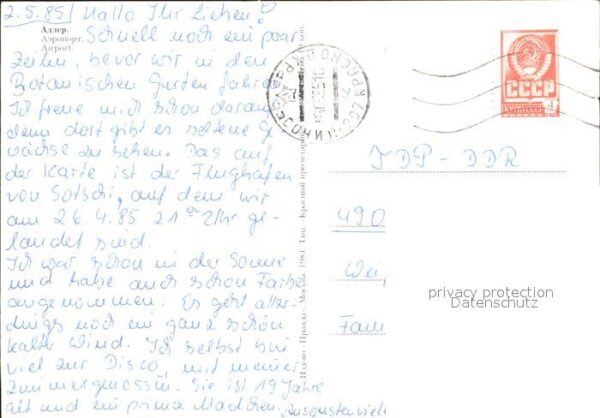 2.5.85/ Hallo Ihr Lieben!
Адлер.
Аэропорт.
Airport.
Schnell noch ein paar
Zeilen, bevor wir in den
Botanischen Garten fahren
Ich freue mich schon darauf
denn dort gibt es seltene Ge
wächse zu sehen. Das auf
der Karte ist der Flughafen
von Sotschi, auf dem wir
am 26.4.85 21 Uhr ge-
landet sind.
Ich war schon in der Sonne
und habe auch schon Farbe
angenommen. Es geht aller-
dings noch ein ganz schön
kalter Wind. Ich selbst bin
viel zur Disco, mit meiner
Zimmergenossin. Sie ist 19 Jahre
alt und ein prima Mädchen. Ansonsten viele
Изд-во «Правда». Москва. 1984. Тип. «Красный пролетарий».
СССР
4
JDP-DDR
490
Wei
Fam
privacy protection
Datenschutz